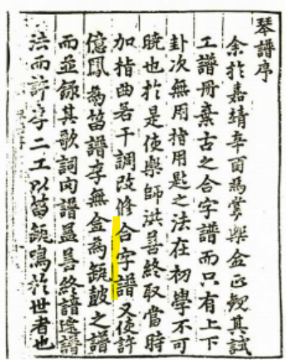 琴譜序
余於嘉靖辛酉爲掌樂僉正觀其試
工譜冊棄古之合字譜而只有上下
卦次無用指用匙之法在初學不可
曉也於是使樂師洪善終取當時
加指曲若干調改修合字譜又使許
億鳳為笛譜李無金為鼓之譜
而並錄其歌詞肉譜盖善終諳譜
法而許李二工以笛鼓鳴於世者也